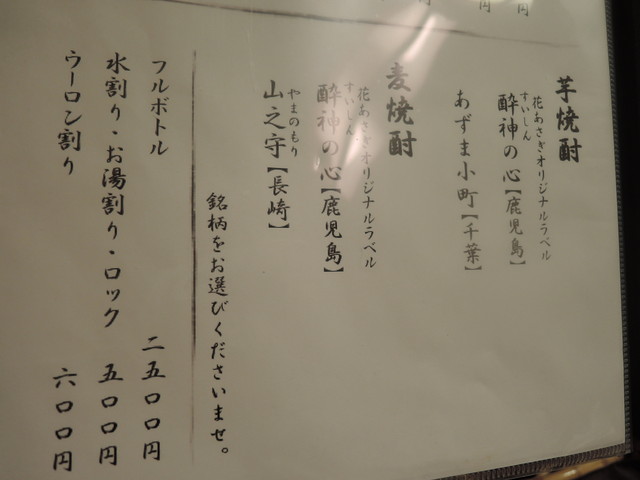 芋焼酎
花あさぎオリジナルラベル
すいしん
酔神の心【鹿児島】
あずま小町【千葉】
麦焼酎
花あさぎオリジナルラベル
すいしん
酔神の心【鹿児島】
やまのもり
山之守【長崎】
銘柄をお選びくださいませ。
フルボトル 二五〇〇円
水割り・お湯割り・ロック 五〇〇円
ウーロン割り 六〇〇円
円
円
円